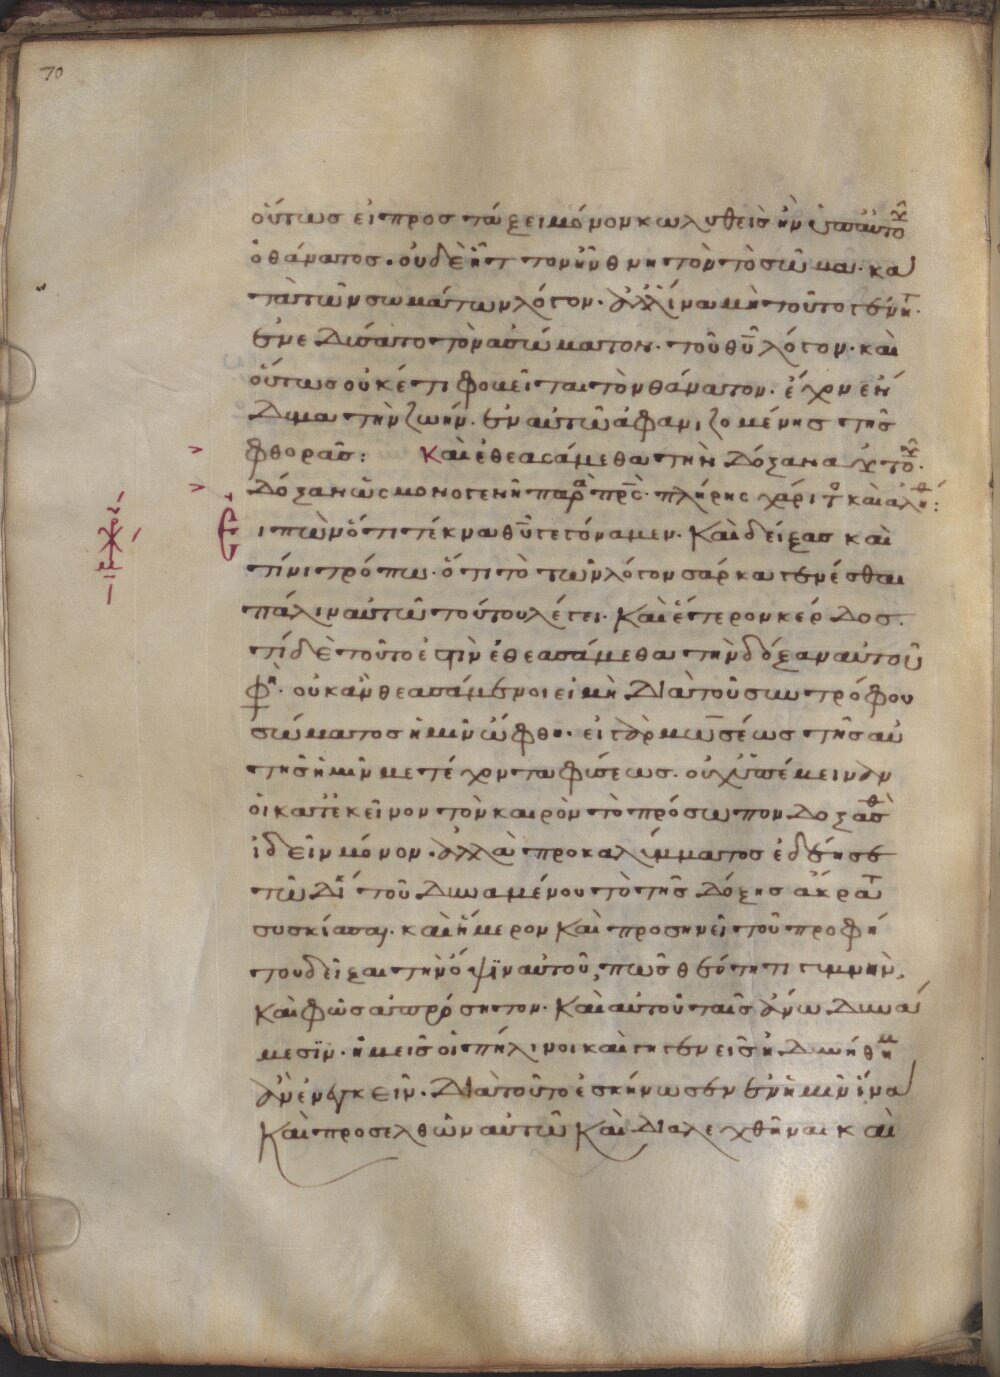 70
οὕτως εἰ προστάξει μόνον κωλυθεὶς ἦν ὑπ' αὐτοῦ
ὁ θάνατος. οὐδὲν ἧττον ἦν θνητὸν τὸ σῶμα. κα
τὰ τῶν σωμάτων λόγον. ἀλλ' ἵνα μὴ τοῦτο γένητ
ἐνεδύσατο τὸν ἀσώματον. τοῦ θυ λόγον. καὶ
οὕτως οὐκέτι φοβεῖται τὸν θάνατον. ἔχον ἔν
δυμα τὴν ζωήν. ἐν αὐτῶ ἀφανιζομένης τῆς
φθορᾶς: Καὶ ἐθεασάμεθα τὴν δόξαν αὐτοῦ.
δόξαν ὡς μονογενῆ παρα πρς. πλήρης χάριτο καὶ αληθ:
ιπὼν ὅτι τέκνα θυ γεγόναμεν. Καὶ δείξας καὶ
τίνι τρόπω. ὅτι τὸ τὼν λόγον σάρκα γενέσθαι
πάλιν αὐτῶ τούτου λέγει. Καὶ ἕτερον κέρδος.
τί δὲ τοῦτο ἐστὶν ἐθεασάμεθα τὴν δόξαν αὐτοῦ
φη. οὐκ ἂν θεασάμενοι εἰ μὴ διὰ τοῦ συντρόφου
σώματος ἡμῖν ὤφθη. εἰ γὰρ μωσέως τῆς αὐ
τῆς ἡμῖν μετέχοντα φύσεως. οὐχ ὑπέμειναν
οἱ κατ' ἐκεῖνον τὸν καιρὸν τὸ πρόσωπον δοξασθὲ
ἰδεῖν μόνον. ἀλλὰ προκαλύμματος ἐδέησε
τῶ δι τοῦ δυναμένου τὸ τῆς δόξης ἄκρατ
συσκίασαι. καὶ ἥμερον καὶ προσηνεῖ τοῦ προφή
του δεῖξαι τὴν ὄψιν αὐτοῦ, πῶς θεότητι γυμνὴν,
καὶ φῶς ἀπρόσητον. καὶ αὐτοῦ ταῖς ἄνω δυνά
μεσϊν. ἡμεῖς οἱ πήλινοι καὶ γηγενεῖς ἠδυνήθημ
ἂν ἐνεγκεῖν. Διὰ τοῦτο ἐσκήνωσεν ἐν ἡμῖν ἵνα
Καὶ προσελθὼν αὐτῶ Καὶ διαλεχθῆναι καὶ